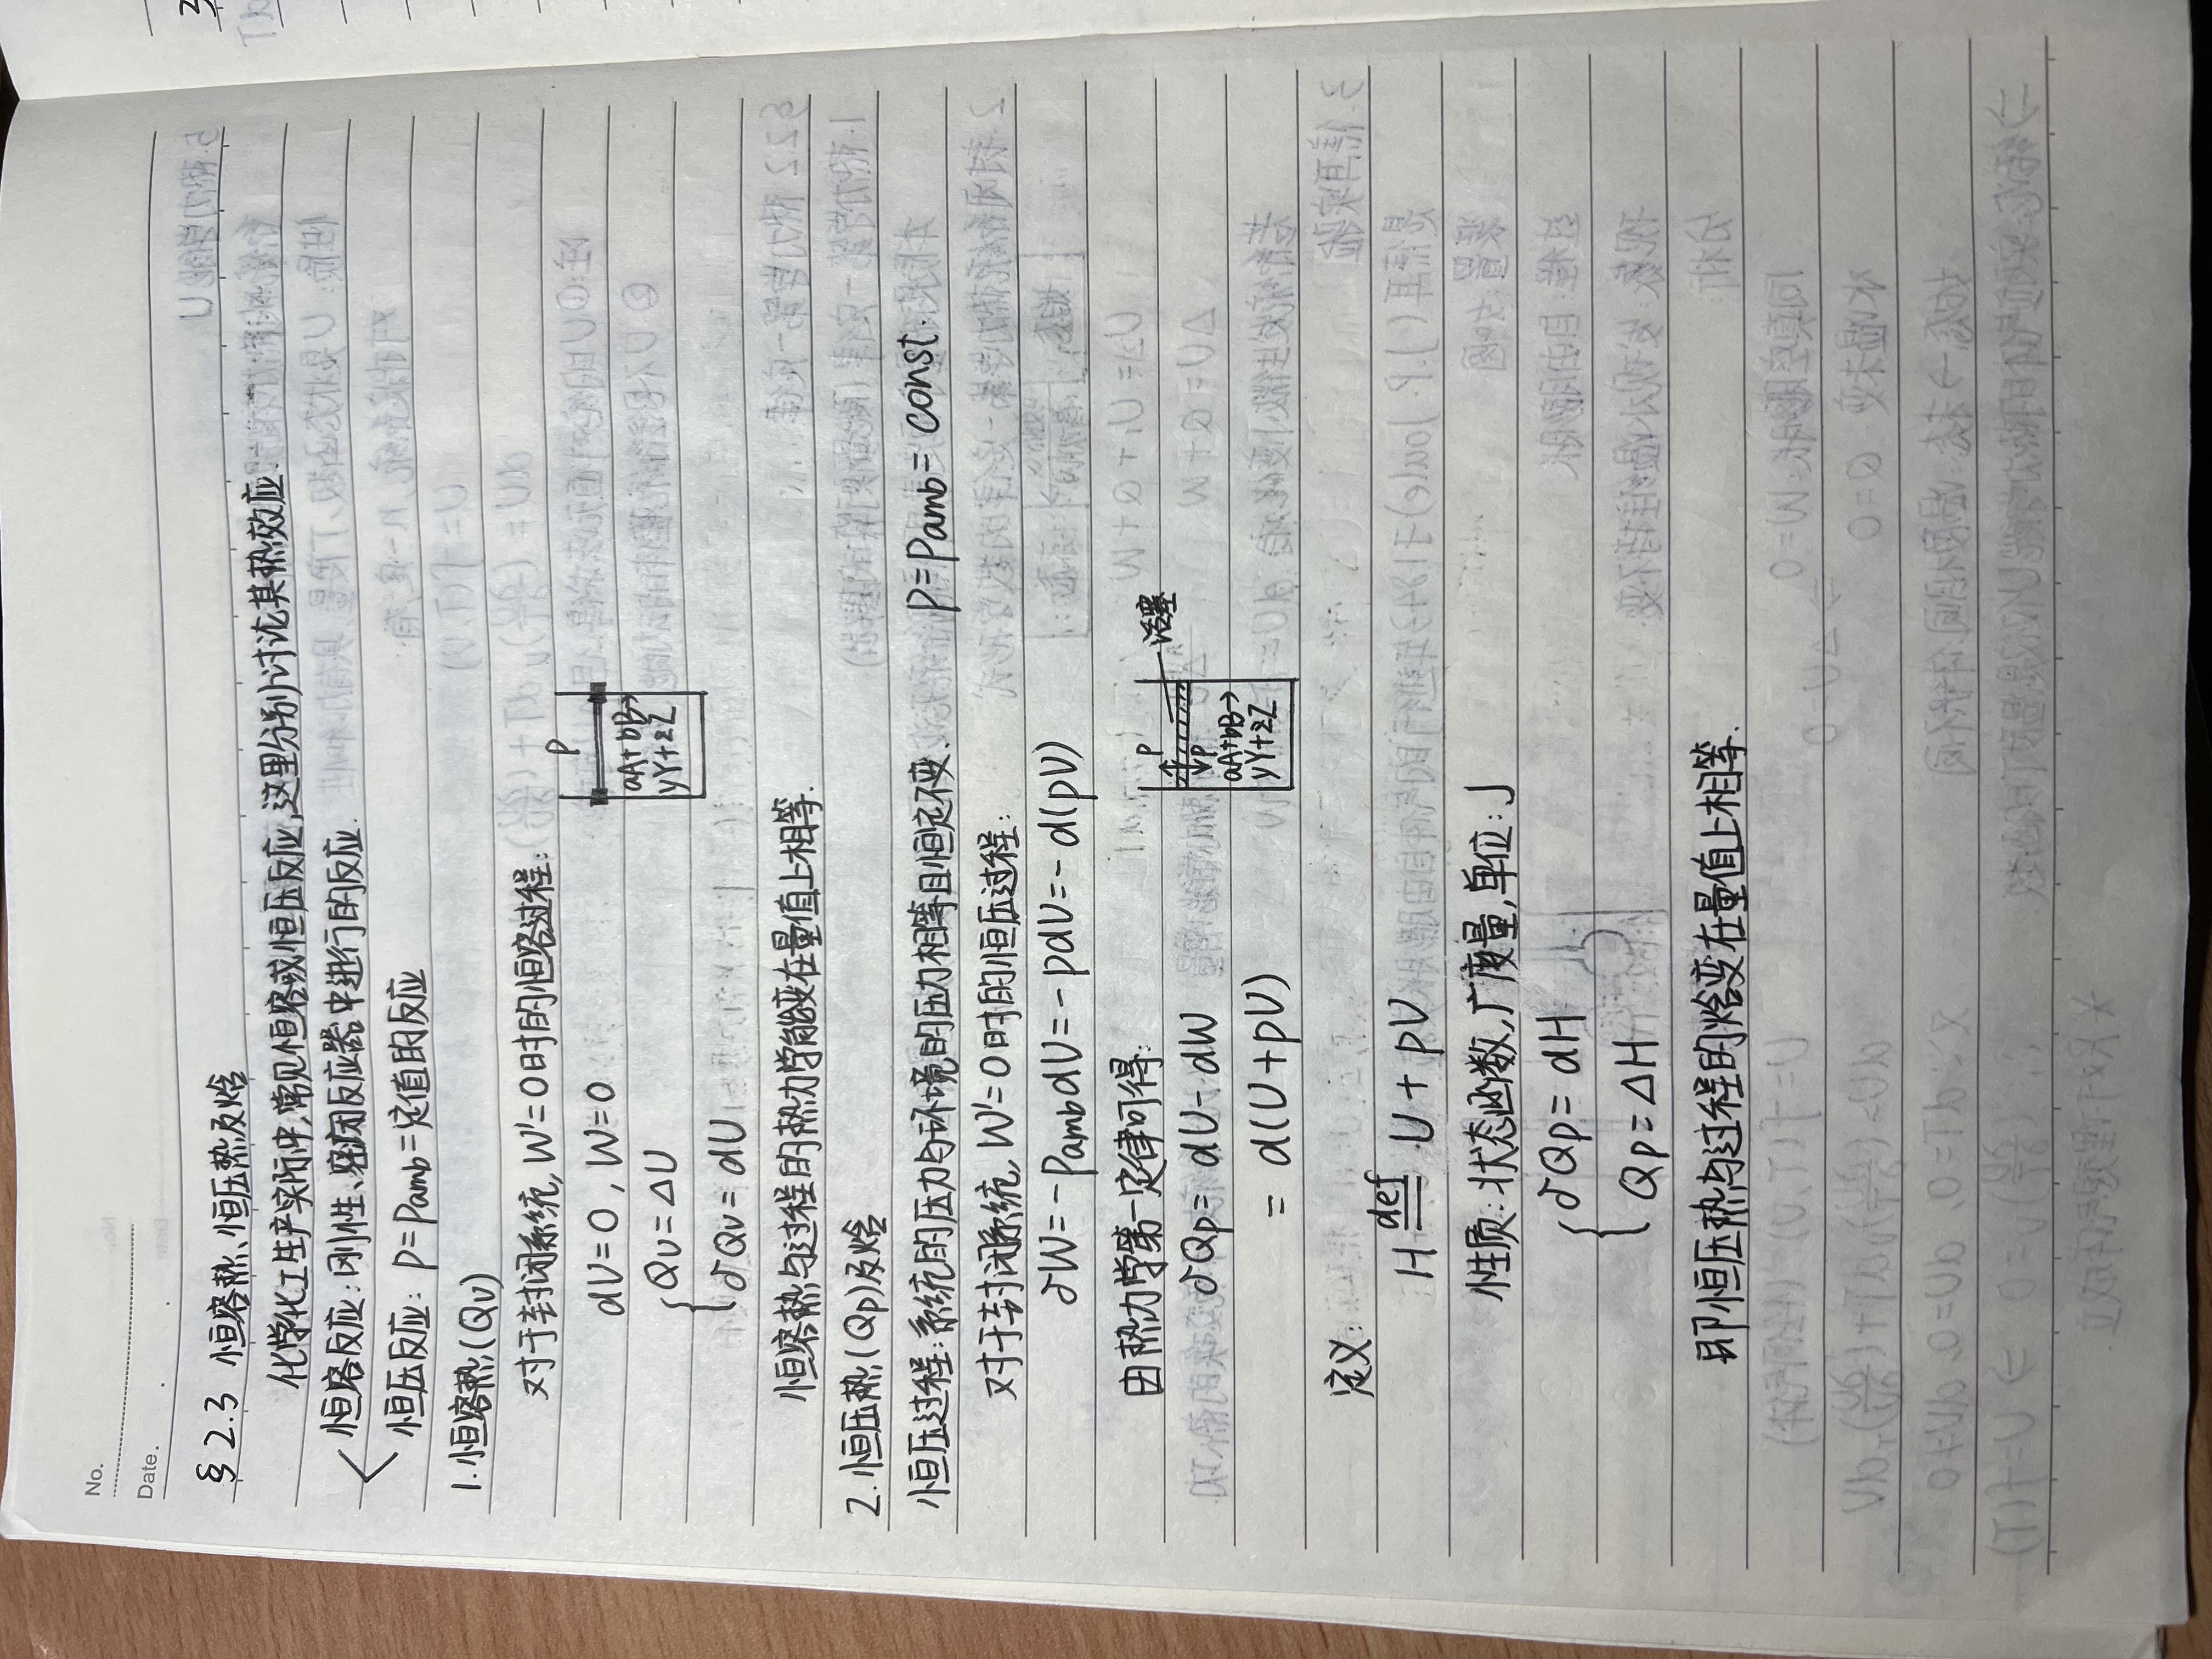 No.
Date. . .
§2.3 恒容热、恒压热及焓
化学化工生产实际中,常见恒容或恒压反应,这里分别讨论其热效应.
恒容反应:刚性、密闭反应器中进行的反应.
恒压反应: p=pamb=定值的反应
1.恒容热(Qv)
对于封闭系统,W'=0时的恒容过程:
dV=0,W=0
p
aA+bB→
yY+zZ
{Qv=ΔU
δQv=dU
恒容热与过程的热力学能变在量值上相等.
2.恒压热(Qp)及焓
恒压过程:系统的压力与环境的压力相等且恒定不变. p=pamb=const.
对于封闭系统,W'=0时的恒压过程:
δW=-pambdV=-pdV=-d(pV)
由热力学第一定律可得:
δQp=dU-dW
=d(U+pV)
p
活塞
p
aA+bB→
yY+zZ
定义:
H def U+pV
性质:状态函数,广度量,单位:J
{δQp=dH
Qp=ΔH
即恒压热与过程的焓变在量值上相等.